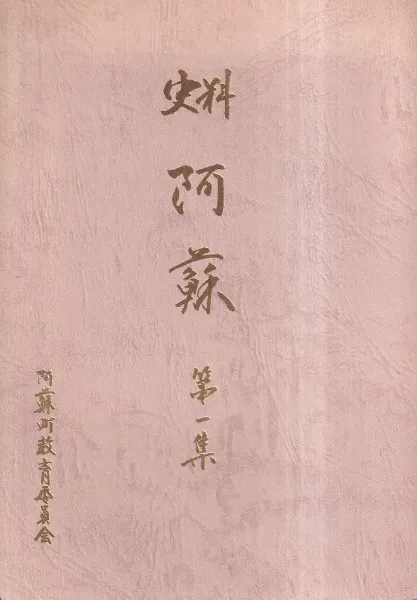 史料
阿蘇
第一集
阿蘇町教育委員会